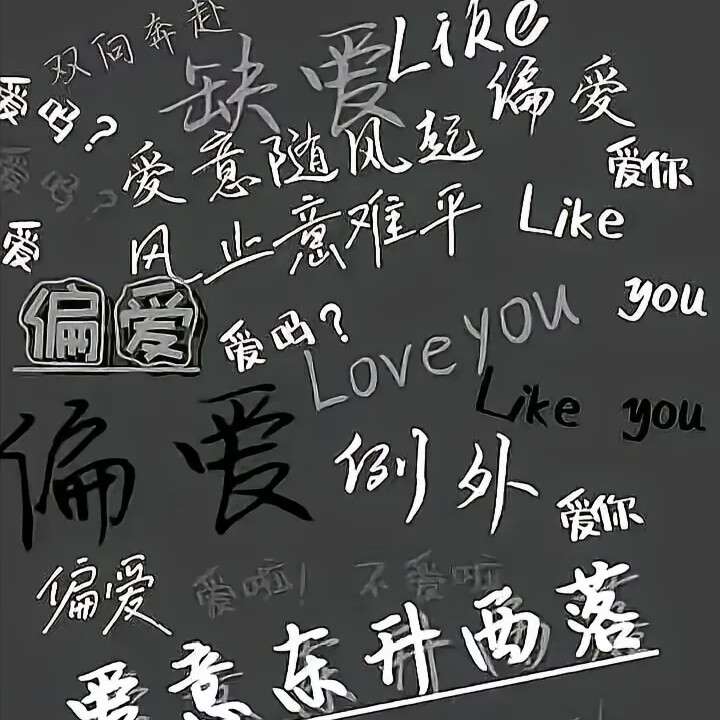 双向奔赴
Like
缺爱
偏爱
爱吗?
爱意随风起
爱你
爱吗?
风止意难平
Like
爱
偏爱
you
爱吗?
Love you
Like you
偏爱
例外
爱你
偏爱
爱啦! 不爱啦
爱意东升西落